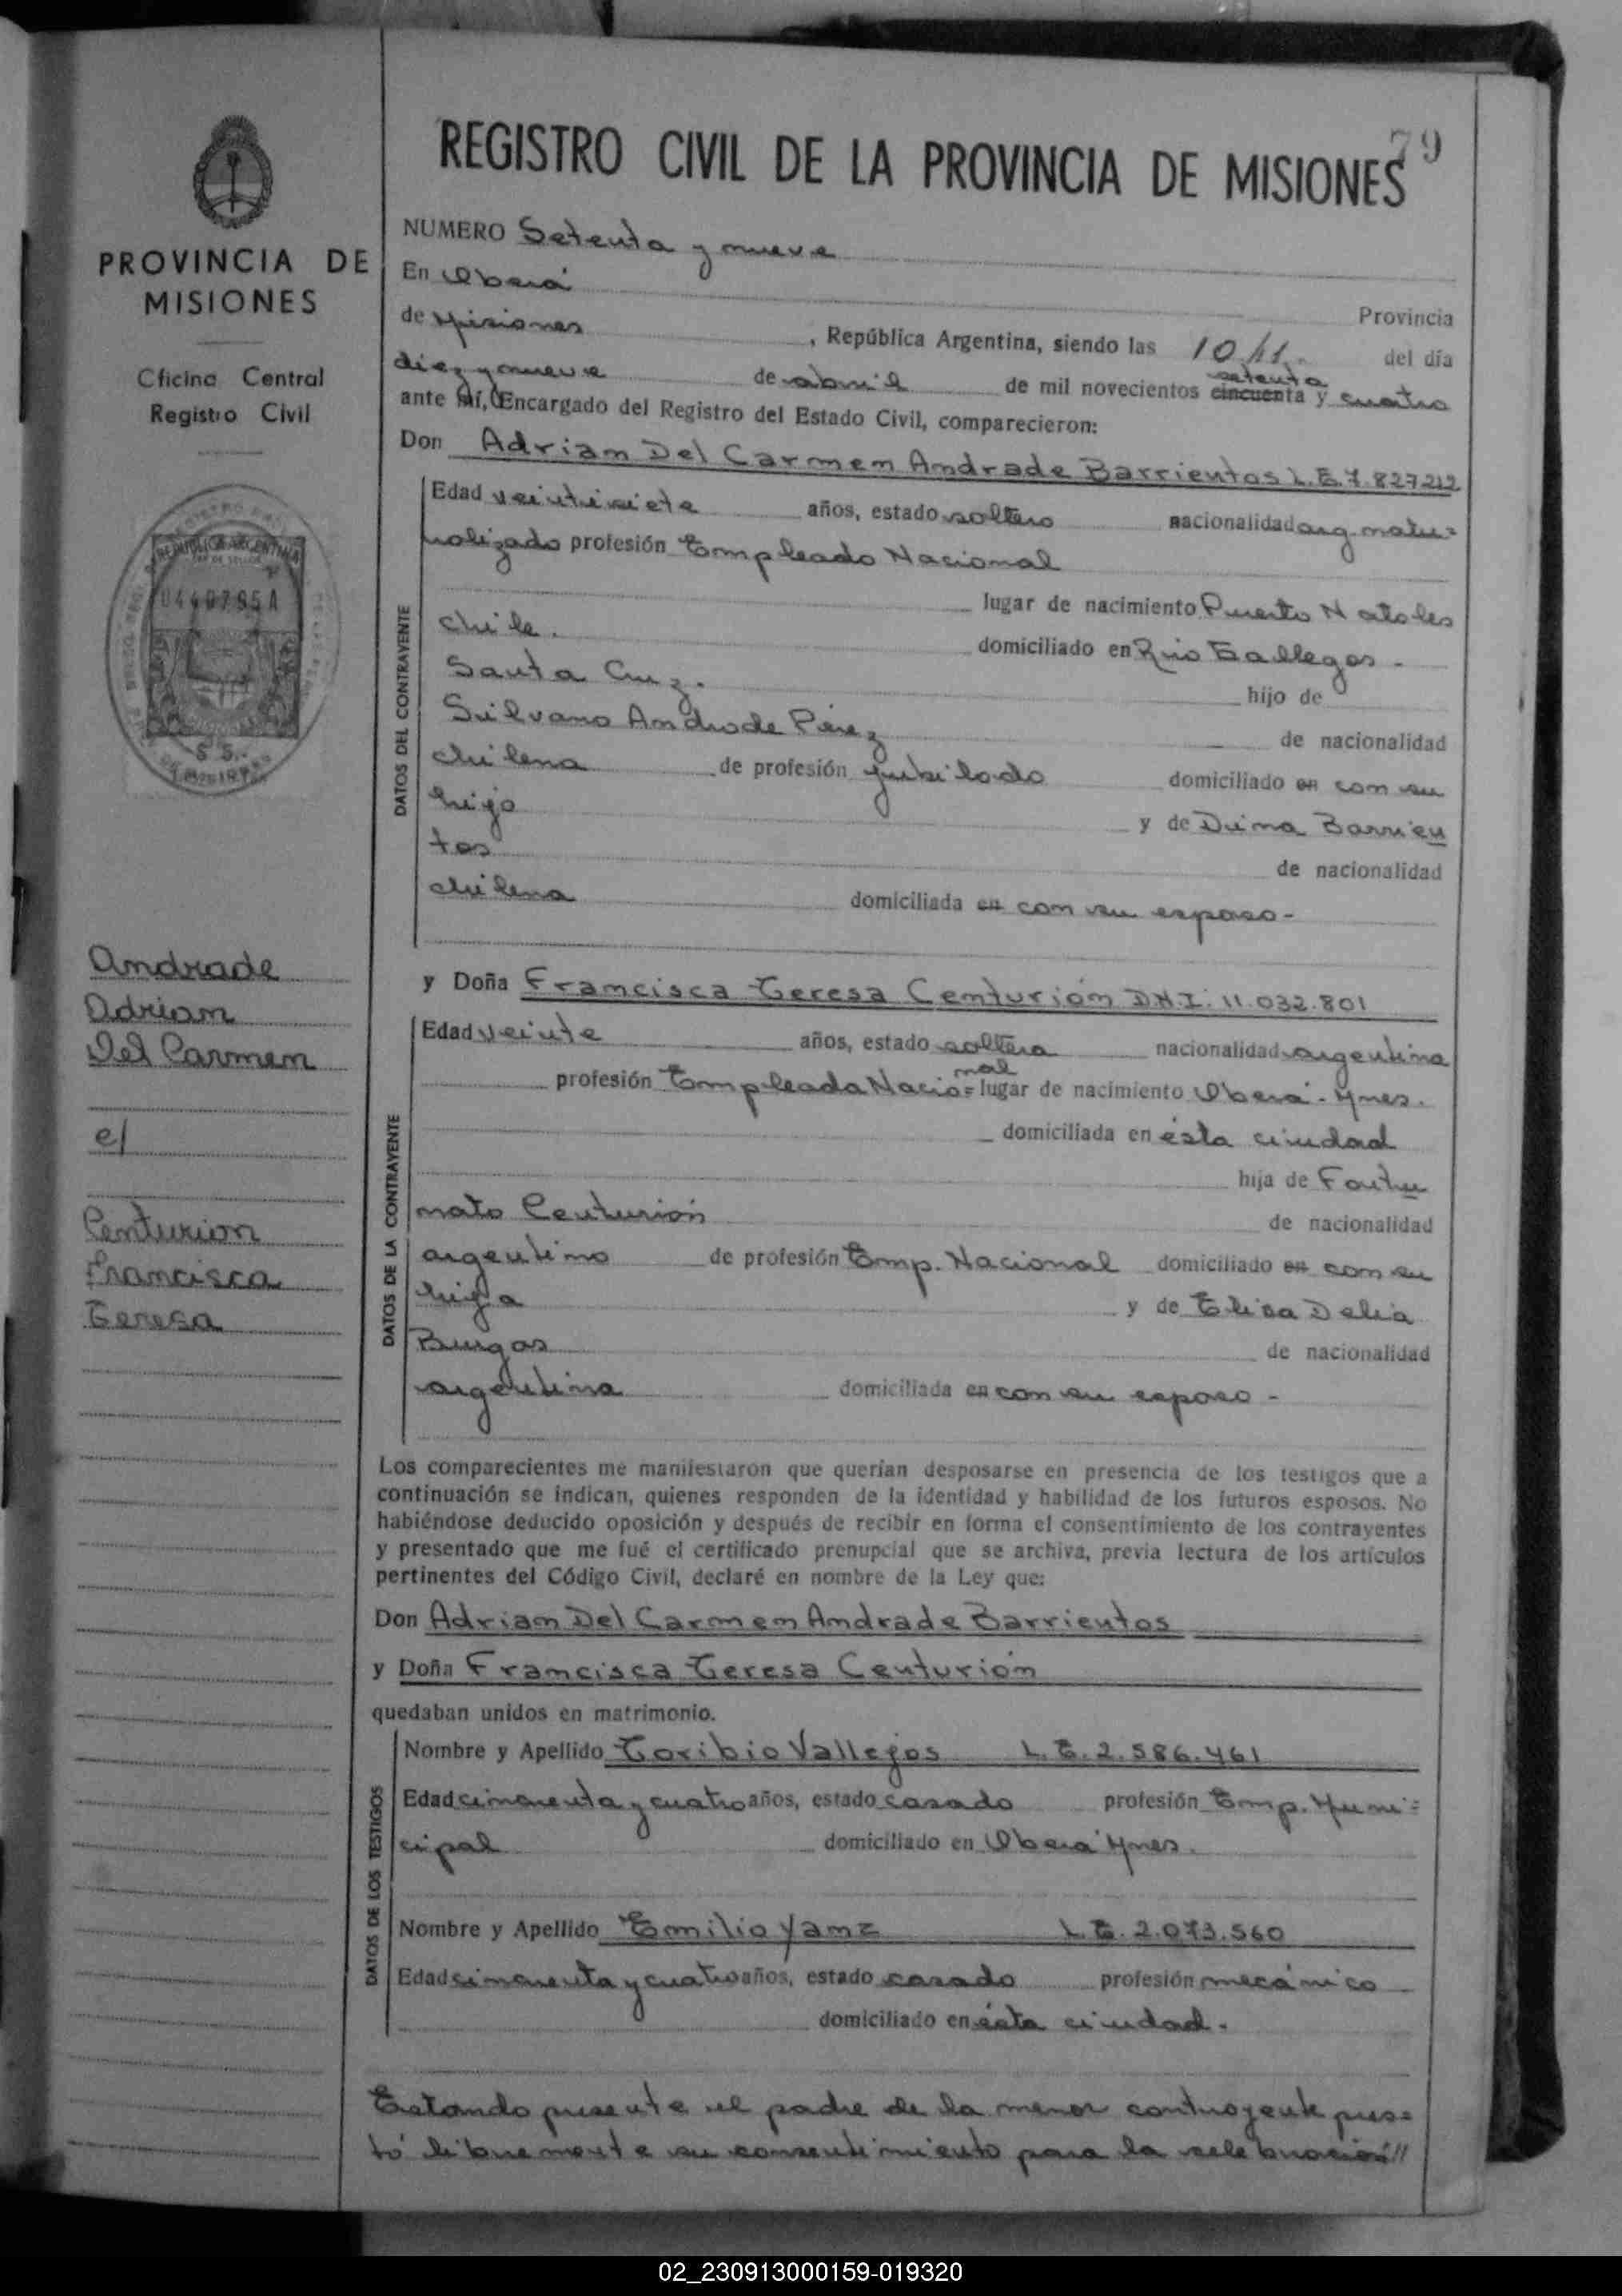 79
REGISTRO CIVIL DE LA PROVINCIA DE MISIONES
PROVINCIA DE
MISIONES
Oficina Central
Registro Civil
REPUBLICA ARGENTINA
0440795A
$ 5.-
NUMERO Setenta y nueve
En Oberá
Provincia
de Misiones , República Argentina, siendo las 10 hs. del día
setenta
diez y nueve de abril de mil novecientos cincuenta y cuatro
ante mí, Encargado del Registro del Estado Civil, comparecieron:
Don Adrian Del Carmen Andrade Barrientos L.E. 7.827212
DATOS DEL CONTRAYENTE
Edad veintisiete años, estado soltero nacionalidad arg. natu=
ralizado profesión Empleado Nacional
lugar de nacimiento Puerto Natales
Chile. domiciliado en Rio Gallegos -
Santa Cruz. hijo de
Silvano Andrade Pérez de nacionalidad
chilena de profesión jubilado domiciliado en con su
hijo y de Dima Barrien
tos de nacionalidad
chilena domiciliada en con su esposo-
y Doña Francisca Teresa Centurión D.N.I. 11.032.801
DATOS DE LA CONTRAYENTE
Edad veinte años, estado soltera nacionalidad argentina
nal
profesión Empleada Nacio= lugar de nacimiento Oberá - Mnes.
domiciliada en ésta ciudad
hija de Fortu
nato Centurión de nacionalidad
argentino de profesión Emp. Nacional domiciliado en con su
hija y de Elisa Delia
Burgos de nacionalidad
argentina domiciliada en con su esposo -
Andrade
Adrian
Del Carmen
c/
Centurion
Francisca
Teresa
Los comparecientes me manifestaron que querían desposarse en presencia de los testigos que a
continuación se indican, quienes responden de la identidad y habilidad de los futuros esposos. No
habiéndose deducido oposición y después de recibir en forma el consentimiento de los contrayentes
y presentado que me fué el certificado prenupcial que se archiva, previa lectura de los artículos
pertinentes del Código Civil, declaré en nombre de la Ley que:
Don Adrian Del Carmen Andrade Barrientos
y Doña Francisca Teresa Centurión
quedaban unidos en matrimonio.
DATOS DE LOS TESTIGOS
Nombre y Apellido Toribio Vallejos L.E. 2.586.461
Edad cincuenta y cuatro años, estado casado profesión Emp. Muni=
cipal domiciliado en Oberá Mnes.
Nombre y Apellido Emilio Yanz L.E. 2.073.560
Edad cincuenta y cuatro años, estado casado profesión mecánico
domiciliado en ésta ciudad.
Estando presente el padre de la menor contrayente pres=
tó libremente su consentimiento para la celebración//
02_230913000159-019320